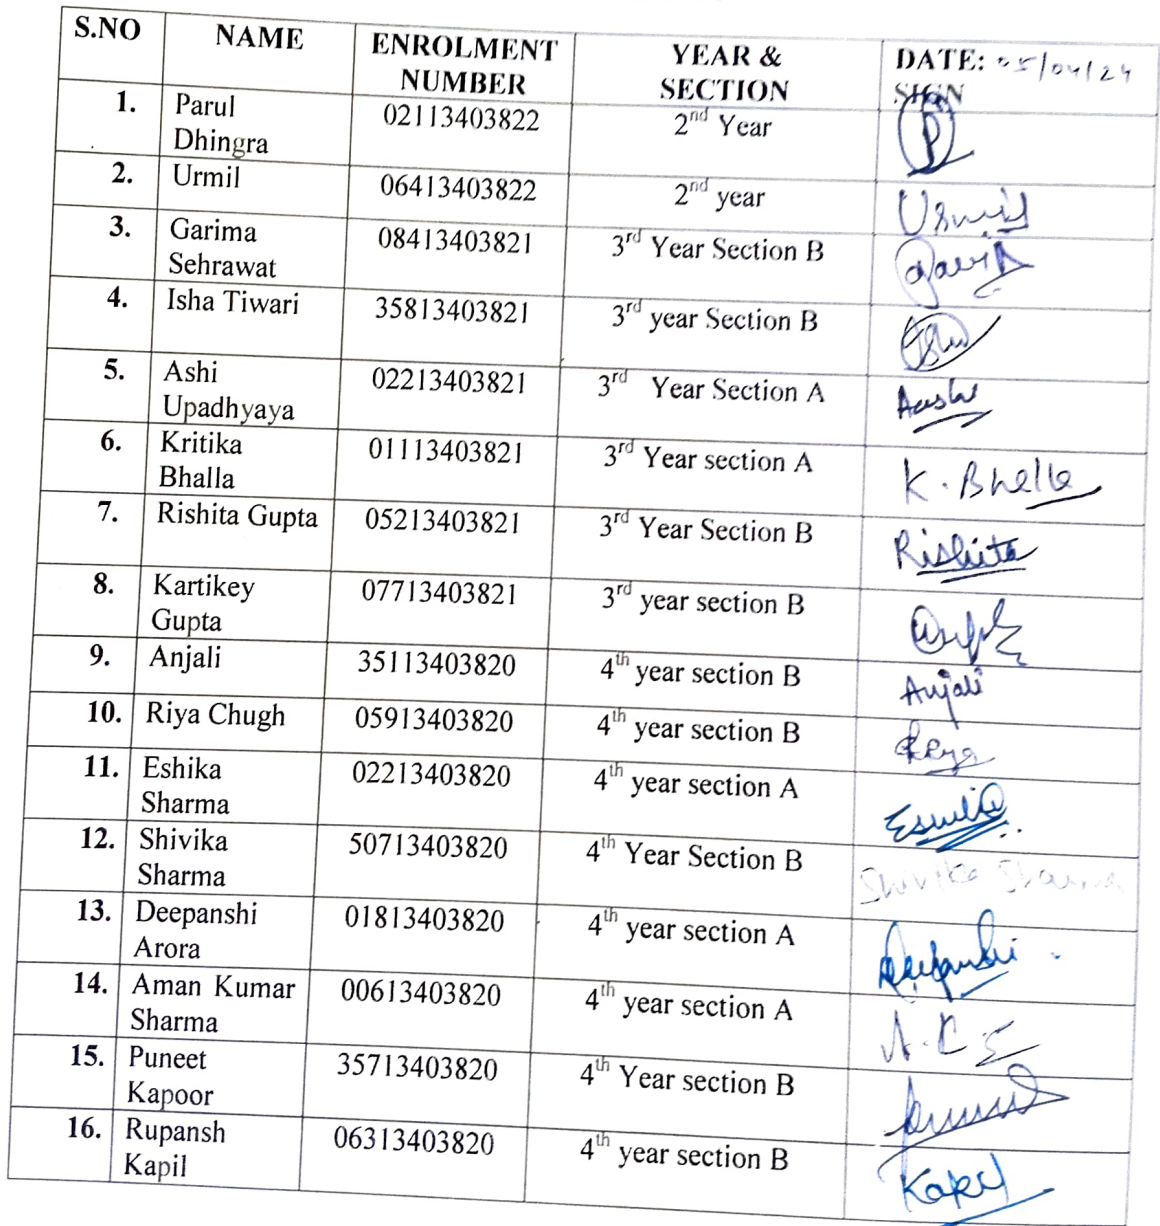 S.NO NAME ENROLMENT NUMBER YEAR & SECTION DATE: 05/04/24 SIGN
1. Parul Dhingra 02113403822 2nd Year
2. Urmil 06413403822 2nd year Urmil
3. Garima Sehrawat 08413403821 3rd Year Section B
4. Isha Tiwari 35813403821 3rd year Section B
5. Ashi Upadhyaya 02213403821 3rd Year Section A
6. Kritika Bhalla 01113403821 3rd Year section A K. Bhalla
7. Rishita Gupta 05213403821 3rd Year Section B Rishita
8. Kartikey Gupta 07713403821 3rd year section B
9. Anjali 35113403820 4th year section B Anjali
10. Riya Chugh 05913403820 4th year section B
11. Eshika Sharma 02213403820 4th year section A
12. Shivika Sharma 50713403820 4th Year Section B Shivika Sharma
13. Deepanshi Arora 01813403820 4th year section A Deepanshi
14. Aman Kumar Sharma 00613403820 4th year section A
15. Puneet Kapoor 35713403820 4th Year section B
16. Rupansh Kapil 06313403820 4th year section B Kapil